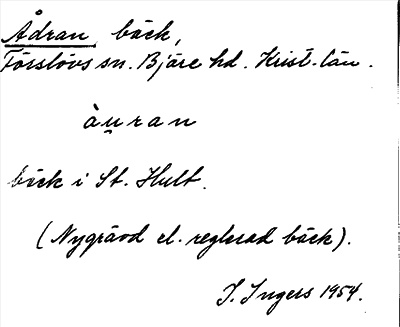 Ådran bäck,
Förslövs sn. Bjäre hd. Krist-län.
àu̯ran
bäck i St. Hult.
(Nygrävd el. reglerad bäck).
I. Ingers 1954.